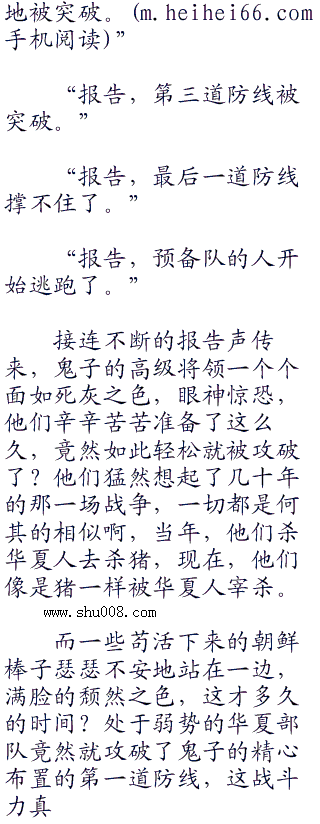 地被突破。(m.heihei66.com
手机阅读)”
“报告，第三道防线被
突破。”
“报告，最后一道防线
撑不住了。”
“报告，预备队的人开
始逃跑了。”
接连不断的报告声传
来，鬼子的高级将领一个个
面如死灰之色，眼神惊恐，
他们辛辛苦苦准备了这么
久，竟然如此轻松就被攻破
了？他们猛然想起了几十年
的那一场战争，一切都是何
其的相似啊，当年，他们杀
华夏人去杀猪，现在，他们
像是猪一样被华夏人宰杀。
www.shu008.com
而一些苟活下来的朝鲜
棒子瑟瑟不安地站在一边，
满脸的颓然之色，这才多久
的时间？处于弱势的华夏部
队竟然就攻破了鬼子的精心
布置的第一道防线，这战斗
力真